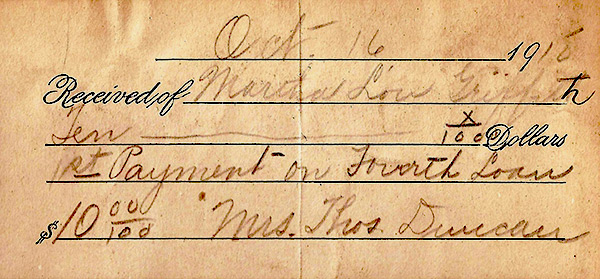 Oct. 16 1918
Received of Martha Lou Griffith
Ten X/100 Dollars
1st Payment on Fourth Loan
$10 00/100 Mrs. Thos. Duncan